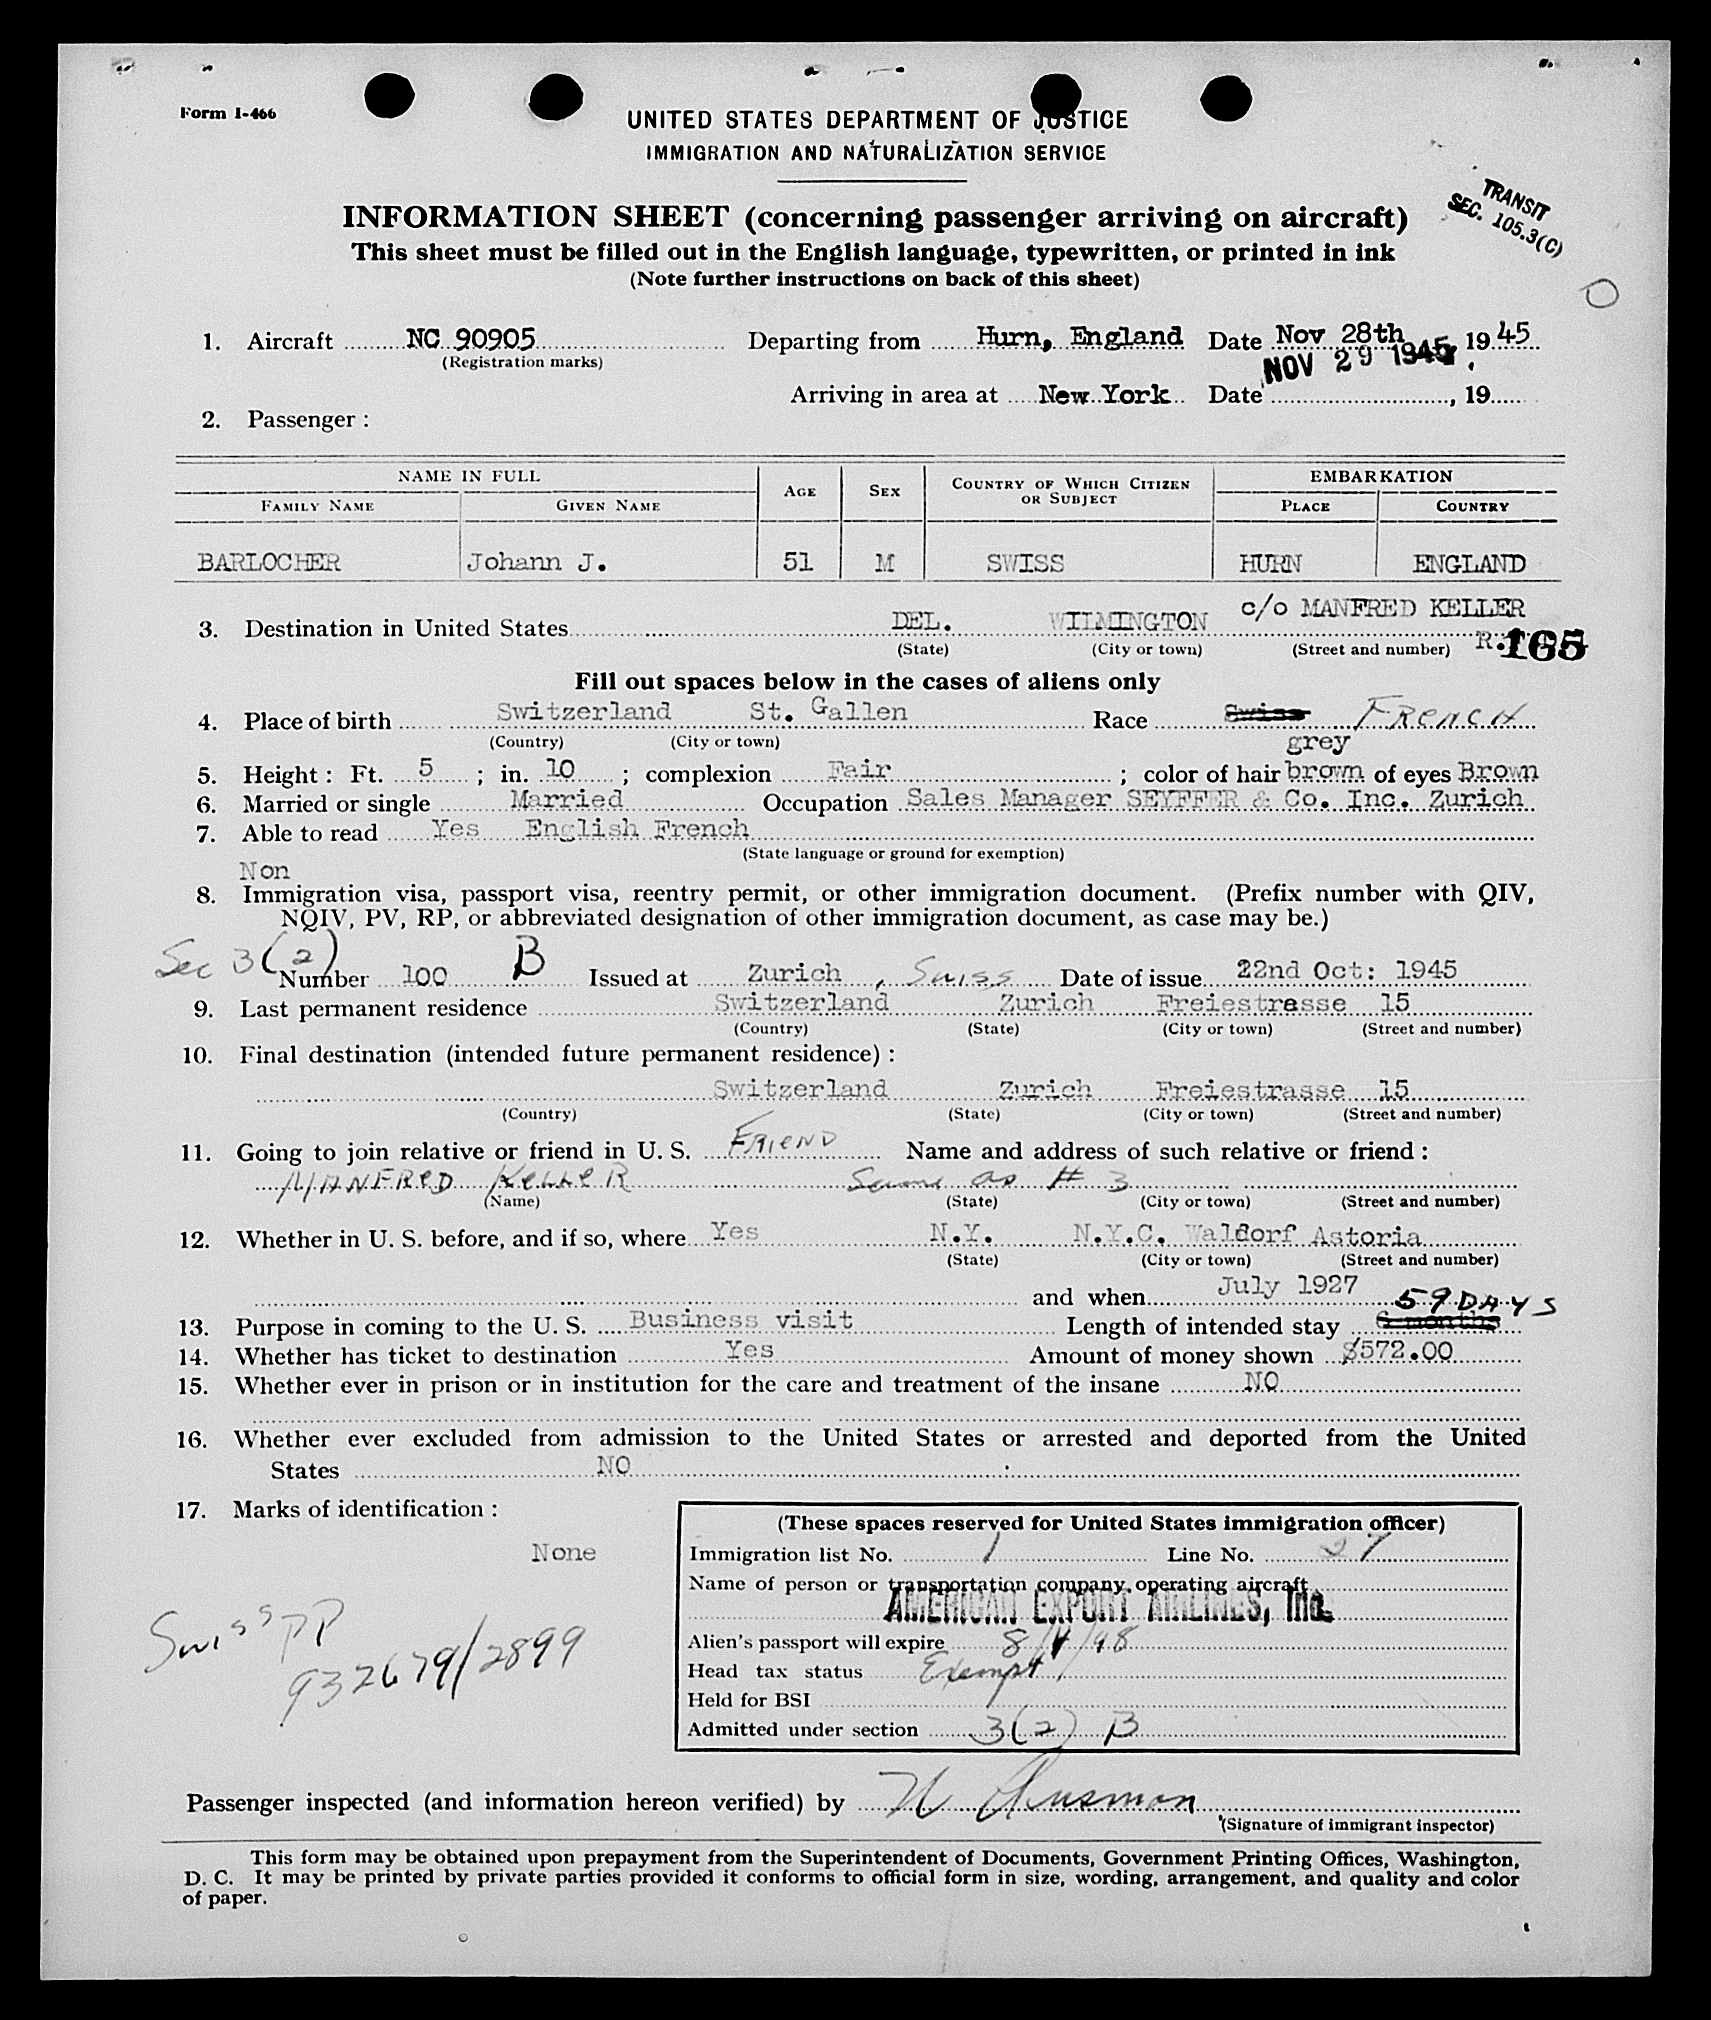 Form I-466
UNITED STATES DEPARTMENT OF JUSTICE
IMMIGRATION AND NATURALIZATION SERVICE
TRANSIT
SEC. 105.3(C)
INFORMATION SHEET (concerning passenger arriving on aircraft)
This sheet must be filled out in the English language, typewritten, or printed in ink
(Note further instructions on back of this sheet)
1. Aircraft NC 90905 Departing from Hurn, England Date Nov 28th 1945
(Registration marks) NOV 29 1945
Arriving in area at New York Date , 19
2. Passenger :
NAME IN FULL AGE SEX COUNTRY OF WHICH CITIZEN OR SUBJECT EMBARKATION
FAMILY NAME GIVEN NAME PLACE COUNTRY
BARLOCHER Johann J. 51 M SWISS HURN ENGLAND
3. Destination in United States DEL. WILMINGTON c/o MANFRED KELLER
(State) (City or town) (Street and number) 165
Fill out spaces below in the cases of aliens only
4. Place of birth Switzerland St. Gallen Race Swiss FRENCH
(Country) (City or town) grey
5. Height : Ft. 5 ; in. 10 ; complexion Fair ; color of hair brown of eyes Brown
6. Married or single Married Occupation Sales Manager SEYFFER & Co. Inc. Zurich
7. Able to read Yes English French
(State language or ground for exemption)
Non
8. Immigration visa, passport visa, reentry permit, or other immigration document. (Prefix number with QIV,
NQIV, PV, RP, or abbreviated designation of other immigration document, as case may be.)
Sec 3(2) B
Number 100 Issued at Zurich, Swiss Date of issue 22nd Oct: 1945
9. Last permanent residence Switzerland Zurich Freiestrasse 15
(Country) (State) (City or town) (Street and number)
10. Final destination (intended future permanent residence) :
Switzerland Zurich Freiestrasse 15
(Country) (State) (City or town) (Street and number)
11. Going to join relative or friend in U. S. FRIEND Name and address of such relative or friend :
MANFRED KELLER Same as # 3
(Name) (State) (City or town) (Street and number)
12. Whether in U. S. before, and if so, where Yes N.Y. N.Y.C. Waldorf Astoria
(State) (City or town) (Street and number)
and when July 1927
59 DAYS
13. Purpose in coming to the U. S. Business visit Length of intended stay 6 months
14. Whether has ticket to destination Yes Amount of money shown $572.00
15. Whether ever in prison or in institution for the care and treatment of the insane NO
16. Whether ever excluded from admission to the United States or arrested and deported from the United
States NO
17. Marks of identification :
None
Swiss PP
932679/2899
(These spaces reserved for United States immigration officer)
Immigration list No. 1 Line No. 27
Name of person or transportation company operating aircraft
AMERICAN EXPORT AIRLINES, Inc.
Alien's passport will expire 8/4/48
Head tax status Exempt
Held for BSI
Admitted under section 3(2) B
Passenger inspected (and information hereon verified) by
(Signature of immigrant inspector)
This form may be obtained upon prepayment from the Superintendent of Documents, Government Printing Offices, Washington,
D. C. It may be printed by private parties provided it conforms to official form in size, wording, arrangement, and quality and color
of paper.